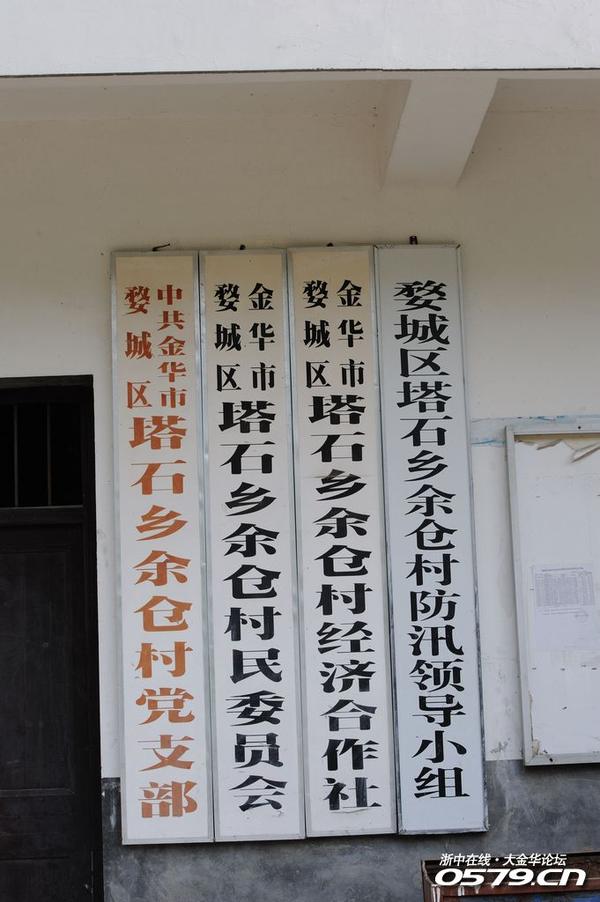 中共金华市
婺城区
塔石乡余仓村党支部
金华市
婺城区
塔石乡余仓村民委员会
金华市
婺城区
塔石乡余仓村经济合作社
婺城区塔石乡余仓村防汛领导小组
浙中在线·大金华论坛
0579.cn